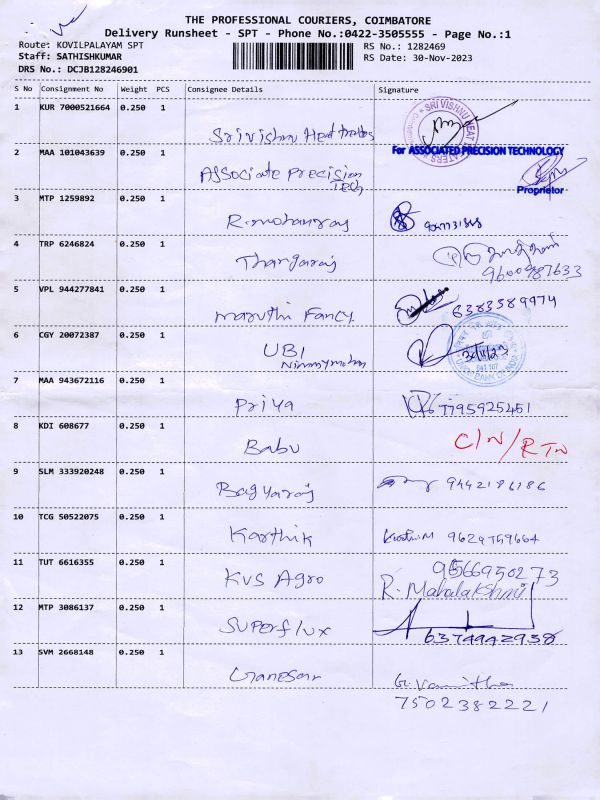 THE PROFESSIONAL COURIERS, COIMBATORE
Delivery Runsheet - SPT - Phone No.:0422-3505555 - Page No.:1
Route: KOVILPALAYAM SPT
RS No.: 1282469
Staff: SATHISHKUMAR
RS Date: 30-Nov-2023
DRS No.: DCJB128246901
S No Consignment No Weight PCS Consignee Details Signature
1 KUR 7000521664 0.250 1
Srivishnu Heat treaters
2 MAA 101043639 0.250 1
For ASSOCIATED PRECISION TECHNOLOGY
Associate Precision
Tech
Proprietor
3 MTP 1259892 0.250 1
R. mohanraj
4 TRP 6246824 0.250 1
Thangaraj
9600987633
5 VPL 944277841 0.250 1
maruthi Fancy 6383589974
6 CGY 20072387 0.250 1
UBI
30/11/23
7 MAA 943672116 0.250 1
Priya 7795925451
8 KDI 608677 0.250 1
Babu C/N/RTN
9 SLM 333920248 0.250 1
Bagyaraj 9442186186
10 TCG 50522075 0.250 1
Karthik 9629759664
11 TUT 6616355 0.250 1
9566950273
KVS Agro R. Mahalakshmi
12 MTP 3086137 0.250 1
Superflux 6374942958
13 SVM 2668148 0.250 1
Ganesan G. Vanitha
7502382221